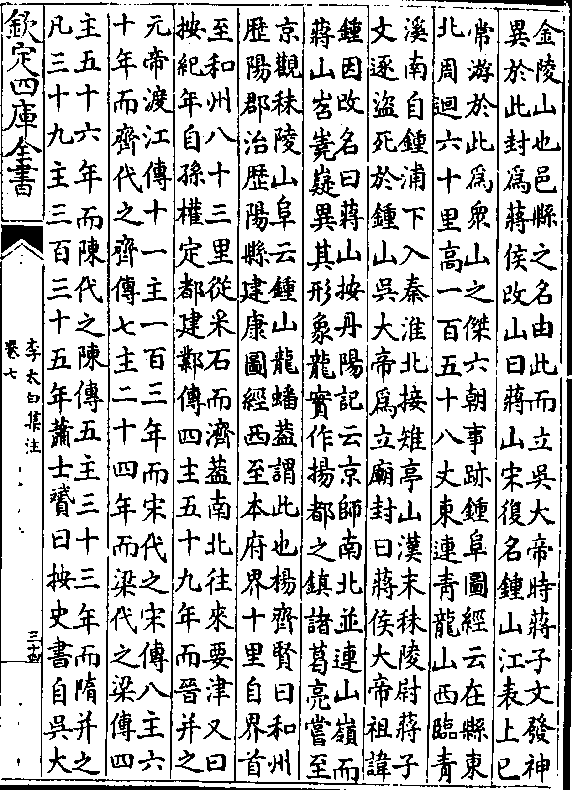 金陵山也邑縣之名由此而立吳大帝時蔣子文發神
異於此封為蔣侯改山曰蔣山宋復名鍾山江表上已
常游於此為衆山之傑六朝事跡鍾阜圖經云在縣東
北周迴六十里高一百五十八丈東連青龍山西臨青
溪南自鍾浦下入秦淮北接雉亭山漢末秣陵尉蔣子
文逐盜死於鍾山吳大帝為立廟封曰蔣侯大帝祖諱
鍾因改名曰蔣山按丹陽記云京師南北並連山嶺而
蔣山岧嶤嶷異其形象龍實作揚都之鎮諸葛亮嘗至
京觀秣陵山阜云鍾山龍蟠葢謂此也楊齊賢曰和州
歴陽郡治歴陽縣建康圖經西至本府界十里自界首
至和州八十三里從采石而濟葢南北往來要津又曰
按紀年自孫權定都建鄴傳四主五十九年而晉并之
元帝渡江傳十一主一百三年而宋代之宋傳八主六
十年而齊代之齊傳七主二十四年而梁代之梁傳四
主五十六年而陳代之陳傳五主三十三年而隋并之
凡三十九主三百三十五年蕭士贇曰按史書自吳大
欽定四庫全書
李太白集注
卷七
三十